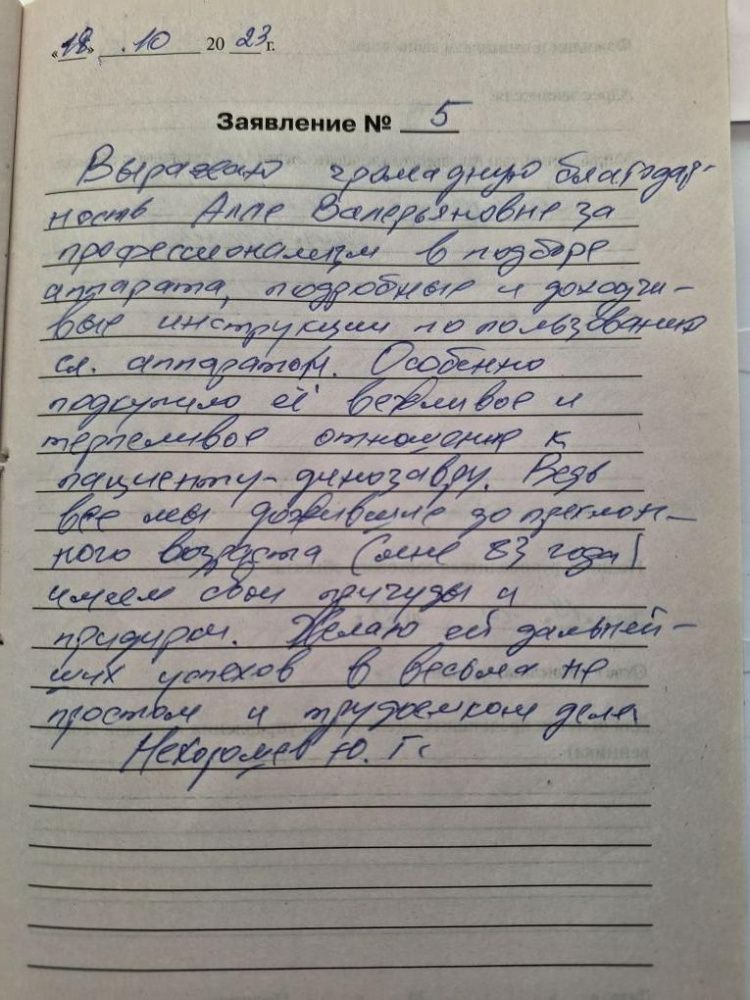 «18» .10 2023 г.
Заявление № 5
Выражаю громадную благодар-
ность Алле Валерьяновне за
профессионализм в подборе
аппарата, подробные и доходчи-
вые инструкции по пользованию
сл. аппаратом. Особенно
подкупило её вежливое и
терпеливое отношение к
пациенту-динозавру. Ведь
все мы дожившие до преклон-
ного возраста (мне 83 года)
имеем свои причуды и
придирки. Желаю ей дальней-
ших успехов в весьма не
простом и трудоемком деле
Нехорошев Ю. Г.